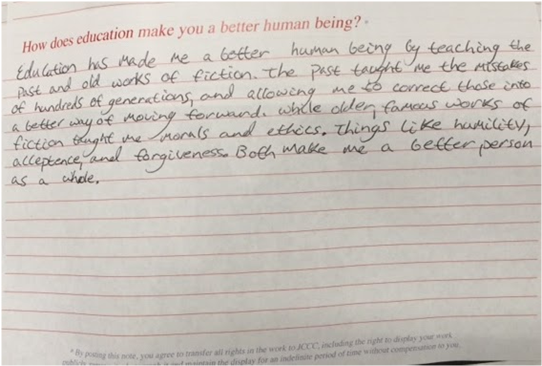 How does education make you a better human being? *
Education has made me a better human being by teaching the
past and old works of fiction. The past taught me the mistakes
of hundreds of generations, and allowing me to correct those into
a better way of moving forward. While older, famous works of
fiction taught me morals and ethics. Things like humility,
acceptence, and forgiveness. Both make me a better person
as a whole.
* By posting this note, you agree to transfer all rights in the work to JCCC, including the right to display your work
and maintain the display for an indefinite period of time without compensation to you.